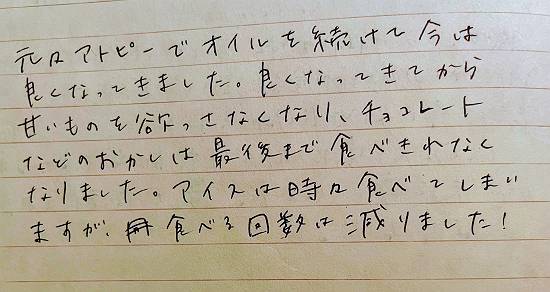 元々アトピーでオイルを続けて今は
良くなってきました。良くなってきてから
甘いものを欲っさなくなり、チョコレート
などのおかしは最後まで食べきれなく
なりました。アイスは時々食べてしまい
ますが、食べる回数は減りました!